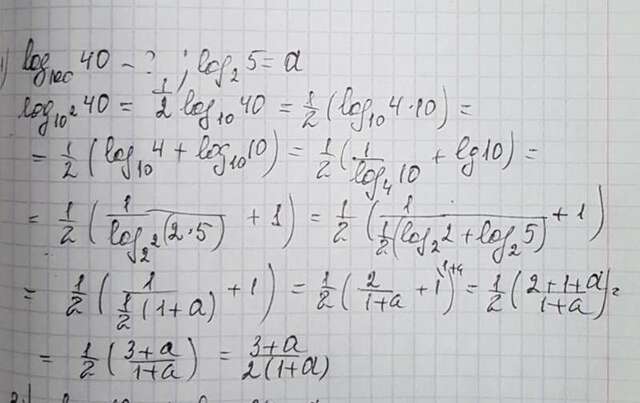 1) log₁₀₀40 - ? ; log₂5 = a
log₁₀²40 = 1/2 log₁₀40 = 1/2 (log₁₀4·10) =
= 1/2 (log₁₀4 + log₁₀10) = 1/2 (1/log₄10 + lg10) =
= 1/2 (1/log₂²(2·5) + 1) = 1/2 (1/(1/2(log₂2 + log₂5)) + 1)
= 1/2 (1/(1/2(1+a)) + 1) = 1/2 (2/(1+a) + 1\1+a) = 1/2 ((2+1+a)/(1+a)) =
= 1/2 ((3+a)/(1+a)) = (3+a)/(2(1+a))